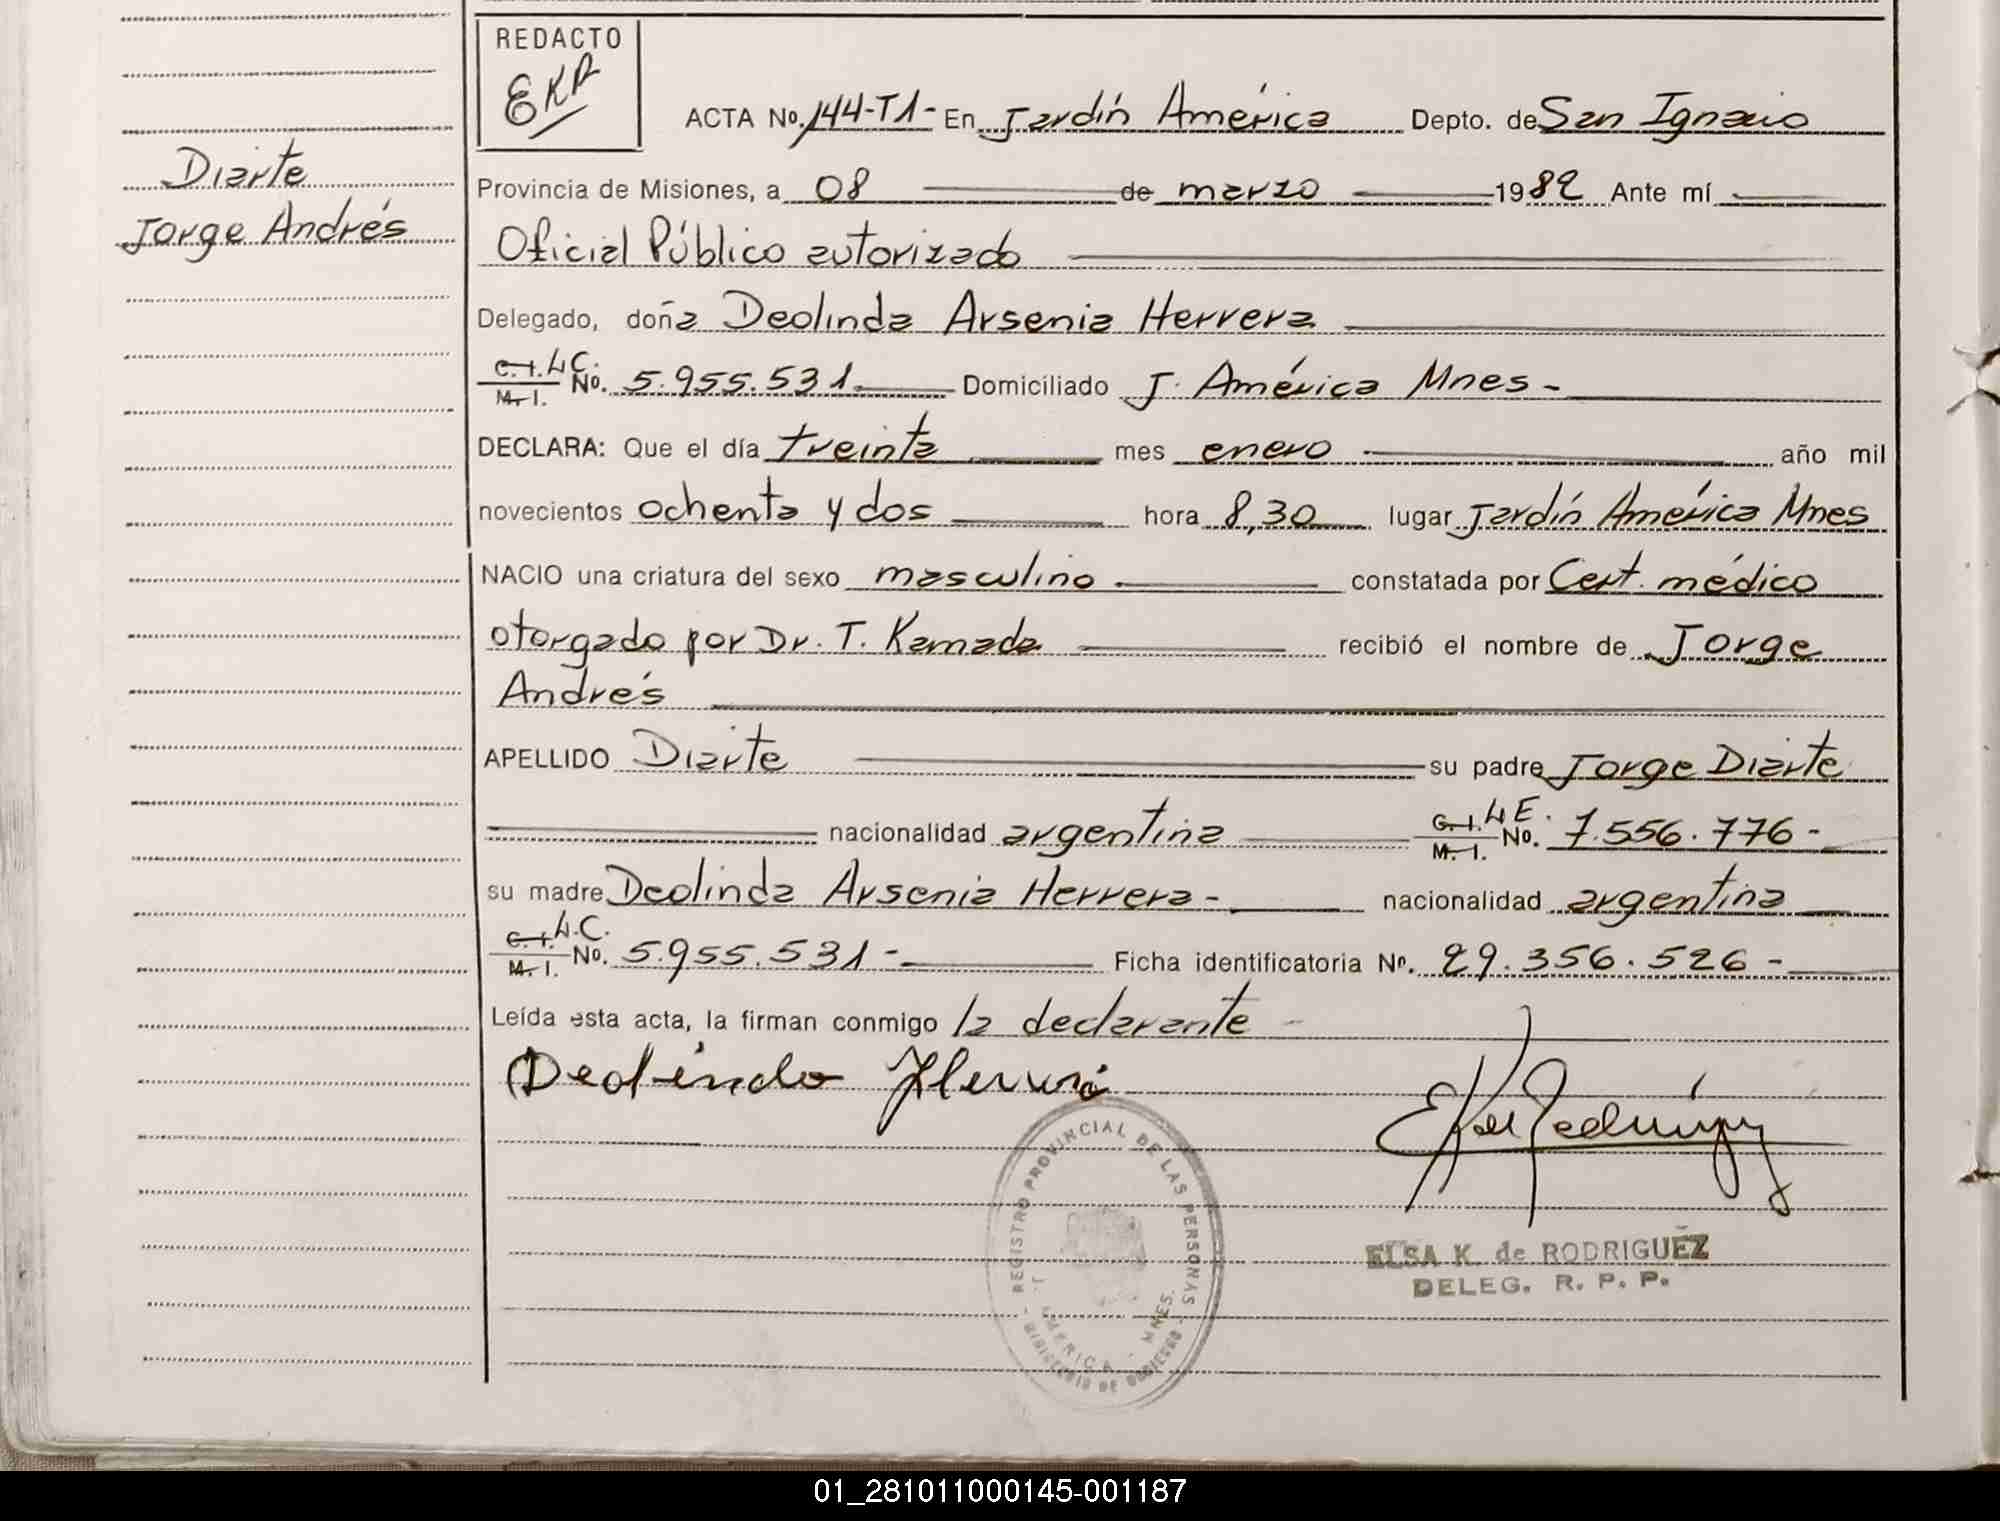 REDACTO
EKR
ACTA No. 144-T1- En Jardín América Depto. de San Ignacio
Diarte
Jorge Andrés
Provincia de Misiones, a 08 de marzo 1982 Ante mí
Oficial Público autorizado
Delegado, doña Deolinda Arsenia Herrera
C.I. L.C.
M.I. No. 5.955.531 Domiciliado J. América Mnes-
DECLARA: Que el día treinta mes enero año mil
novecientos ochenta y dos hora 8,30 lugar Jardín América Mnes
NACIO una criatura del sexo masculino constatada por Cert. médico
otorgado por Dr. T. Kamada recibió el nombre de Jorge
Andrés
APELLIDO Diarte su padre Jorge Diarte
nacionalidad argentina C.I. L.E. M.I. No. 7.556.776-
su madre Deolinda Arsenia Herrera- nacionalidad argentina
C.I. L.C.
M.I. No. 5.955.531- Ficha identificatoria No. 29.356.526-
Leída esta acta, la firman conmigo la declarante-
Deolinda Herrera
REGISTRO PROVINCIAL DE LAS PERSONAS
J. AMERICA - MNES.
MINISTERIO DE GOBIERNO
EK de Rodríguez
ELSA K. de RODRIGUEZ
DELEG. R. P. P.
01_281011000145-001187